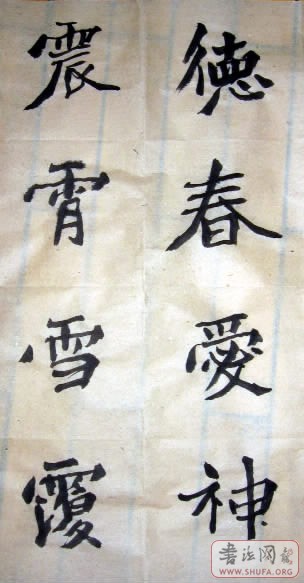 德春愛神
震霄雪覆
書法网
WWW.SHUFA.ORG